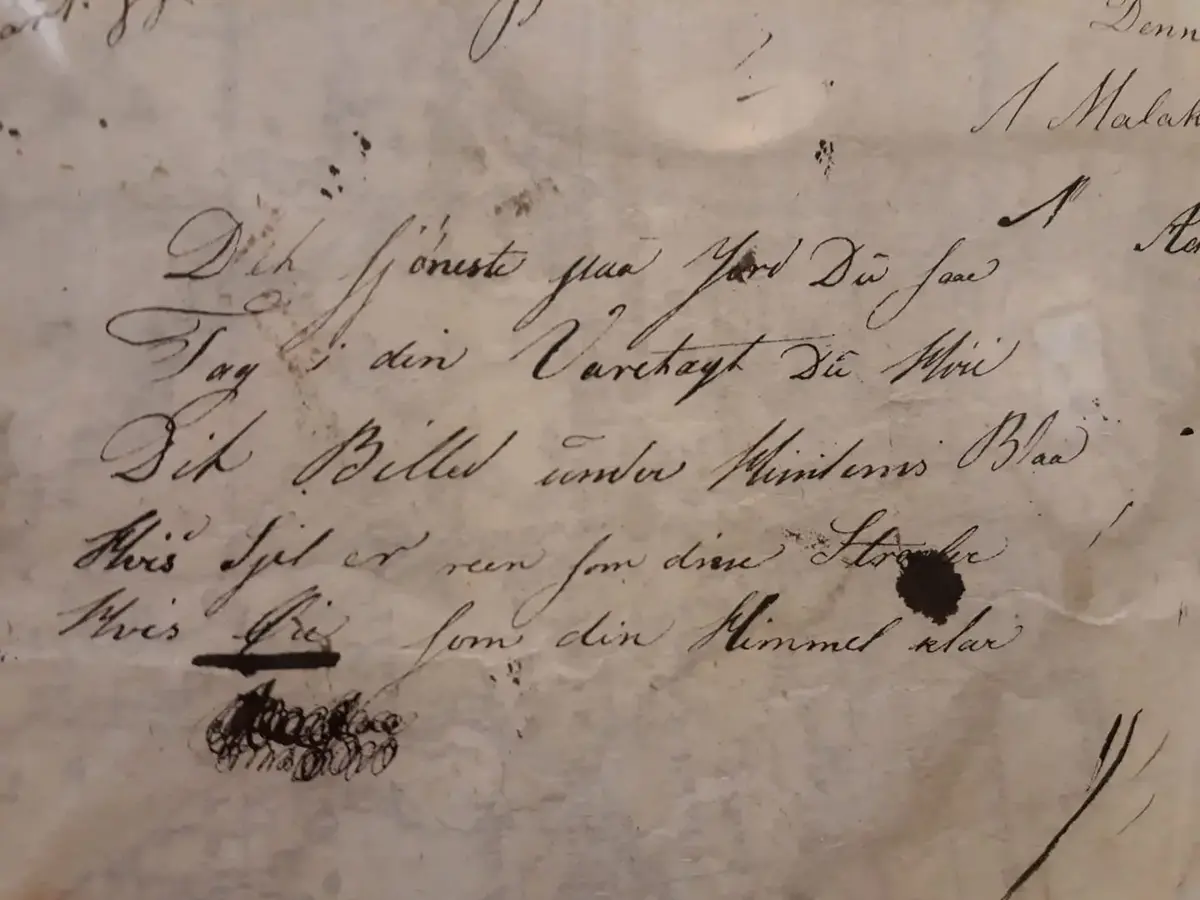 Denn
A Malak
Deh sjöneste paa Jord Dū saae
Tag i din Varetægt Dū Hvie
Dit Billed ūnder Himlens Blaa
Hvis Sjel er reen som disse Straaler
Hvis Øie som din Himmel klar